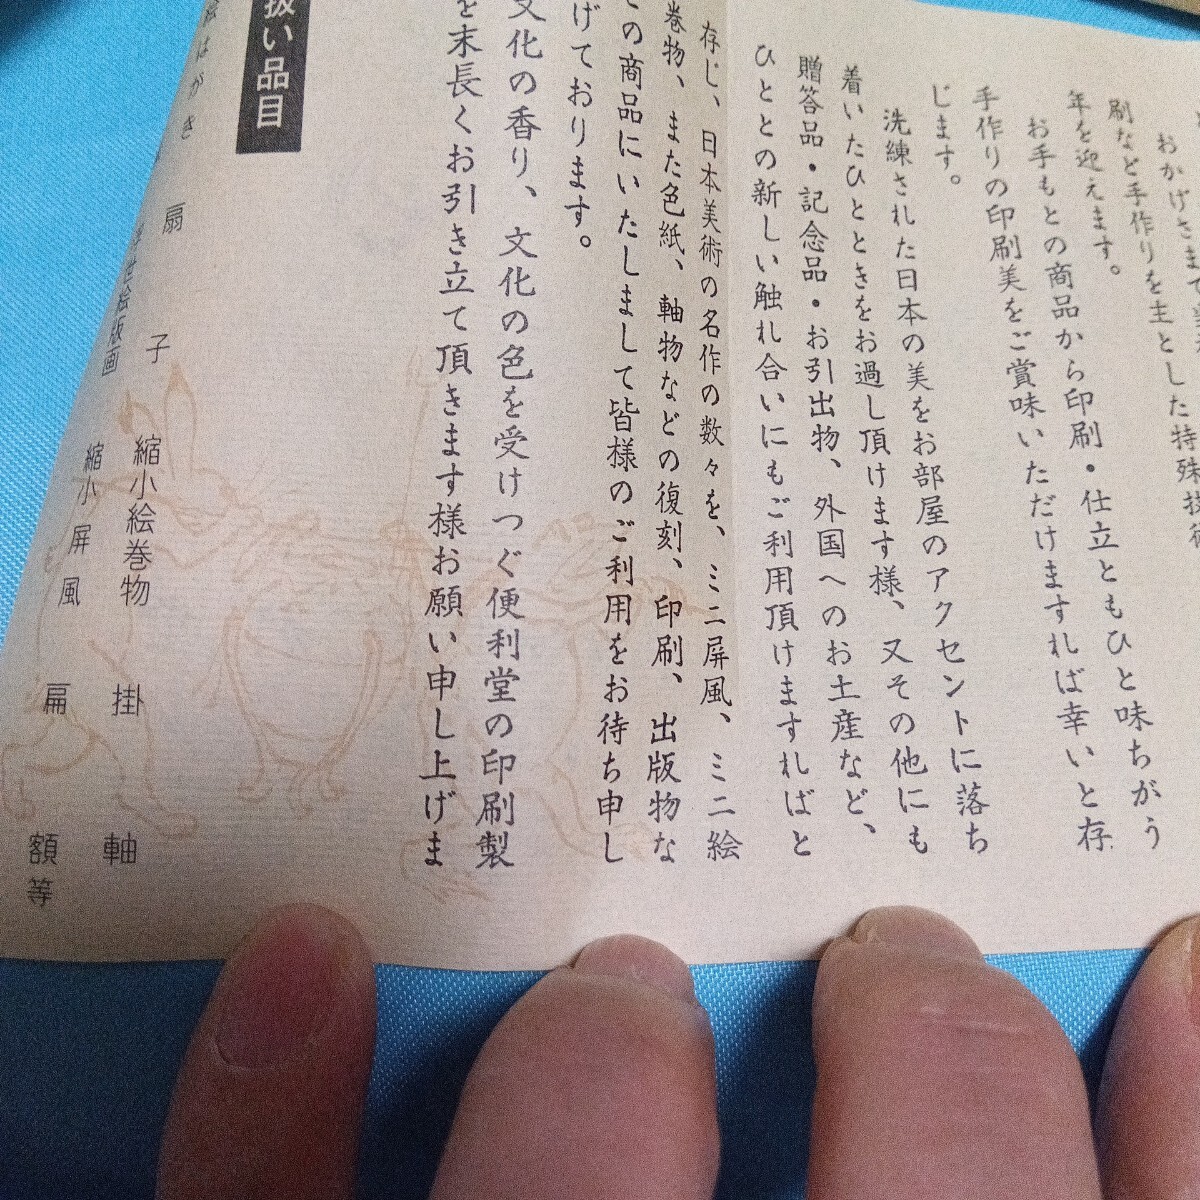 おかげさまで
刷など手作りを主とした特殊技術
年を迎えます。
お手もとの商品から印刷・仕立ともひと味ちがう
手作りの印刷美をご賞味いただけますれば幸いと存
じます。
洗練された日本の美をお部屋のアクセントに落ち
着いたひとときをお過し頂けます様、又その他にも
贈答品・記念品・お引出物、外国へのお土産など、
ひととの新しい触れ合いにもご利用頂けますればと
存じ、日本美術の名作の数々を、ミニ屏風、ミニ絵
巻物、また色紙、軸物などの復刻、印刷、出版物な
の商品にいたしまして皆様のご利用をお待ち申し
げております。
文化の香り、文化の色を受けつぐ便利堂の印刷製
を末長くお引き立て頂きます様お願い申し上げま
扱い品目
絵はがき
扇子
縮小絵巻物
掛軸
浮世絵版画
縮小屏風
扁額等